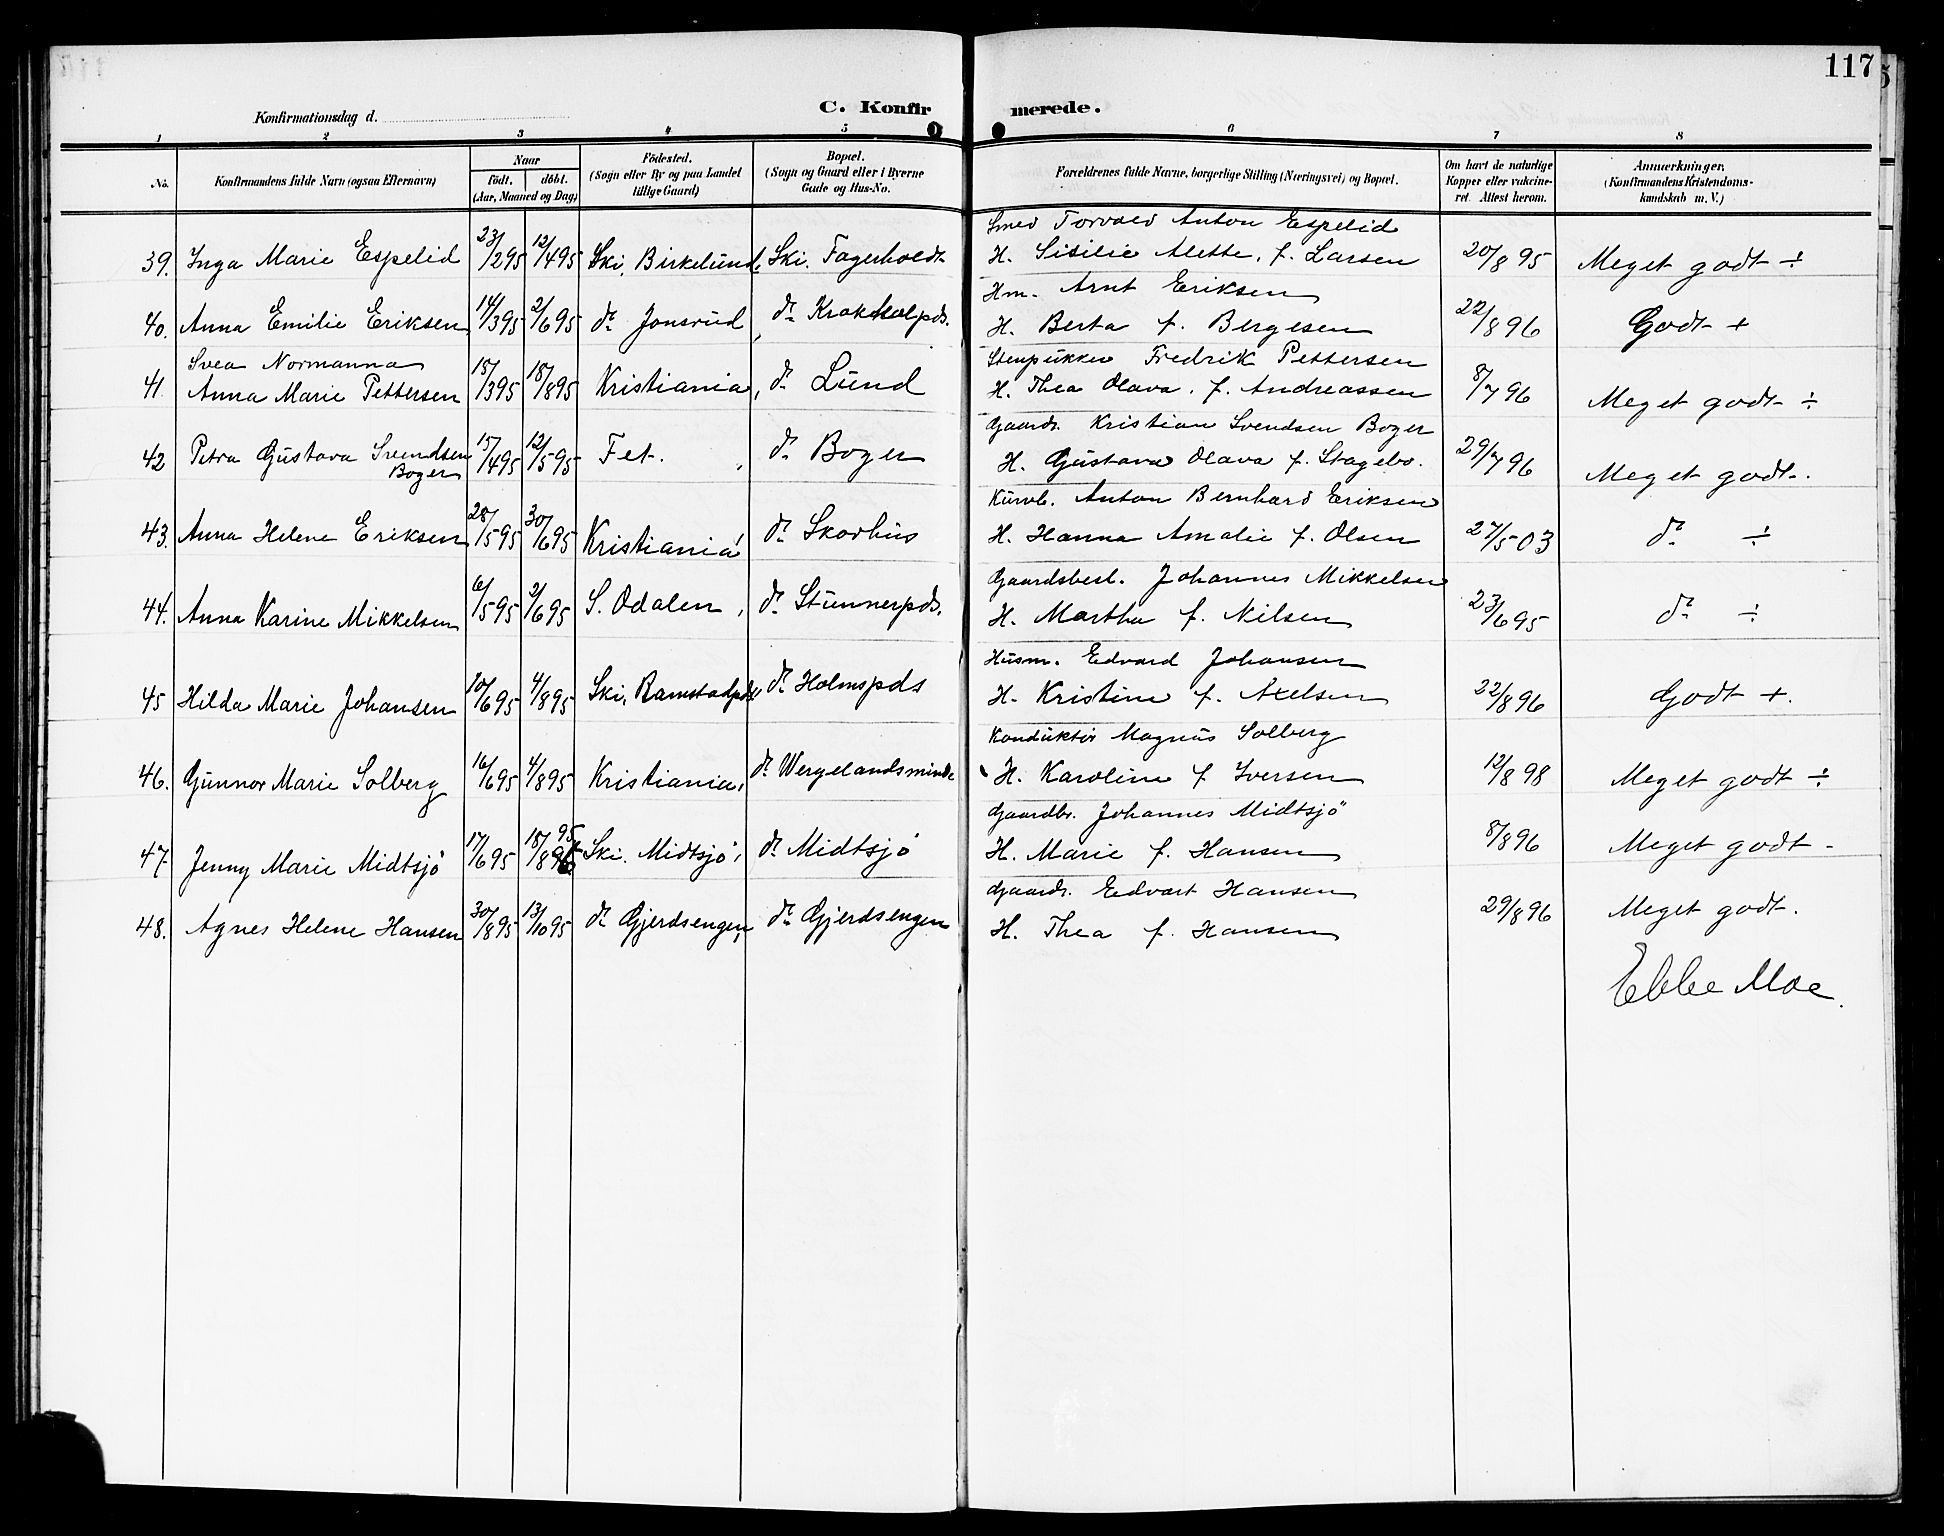 117
C. Konfirmerede.
Konfirmationsdag d.
1 2 3 4 5 6 7 8
No.
Konfirmandens fulde Navn (ogsaa Efternavn)
Naar
födt. döbt.
(Aar, Maaned og Dag)
Födested.
(Sogn eller By og paa Landet
tillige Gaard)
Bopæl.
(Sogn og Gaard eller i Byerne
Gade og Hus-No.
Forældrenes fulde Navne, borgerlige Stilling (Næringsvei) og Bopæl.
Om havt de naturlige
Kopper eller vakcine-
ret. Attest herom.
Anmærkninger.
(Konfirmandens Kristendoms-
kundskab m. V.)
Smed Torvald Anton Espelid
39. Inga Marie Espelid 23/2 95 12/4 95 Ski, Birkelund, Ski. Fagerholdt H. Sisilie Alette, f. Larsen 20/8 95 Meget godt ÷
Hm. Arnt Eriksen
40. Anna Emilie Eriksen 14/3 95 2/6 95 do Jonsrud, do Krokholpds. H. Berta f. Bergesen 22/8 96 Godt +
Svea Normanna
Stenpukker Fredrik Pettersen
41 Anna Marie Pettersen 15/3 95 18/8 95 Kristiania, do Lund H. Thea Olava, f. Andreassen 8/7 96 Meget godt ÷
Gaards. Kristian Svendsen Boger
42 Petra Gustava Svendsen 15/4 95 12/5 95 Fet. , do Boger H. Gustava Olava f. Stagebo. 29/7 96 Meget godt.
Boger
Kurvb. Anton Bernhard Eriksen
43. Anna Helene Eriksen 28/5 95 30/6 95 Kristiania, do Skorhus H. Hanna Amalie f. Olsen 27/5 03 do ÷
Gaardsbest. Johannes Mikkelsen
44. Anna Karine Mikkelsen 6/5 95 2/6 95 S. Odalen, do Stunnerpds. H. Martha f. Nilsen 23/6 95 do ÷
Husm. Edvard Johansen
45 Hilda Marie Johansen 10/6 95 4/8 95 Ski, Ramstadpds do Holmspds H. Kristine f. Axelsen 22/8 96 Godt +.
Konduktör Magnus Solberg
46. Gunnor Marie Solberg 16/6 95 4/8 95 Kristiania, do Wergelandsminde H. Karoline f Iversen 12/8 98 Meget godt ÷
Gaardbr. Johannes Midtsjö
47 Jenny Marie Midtsjö 17/6 95 18/8 95 Ski. Midtsjö, do Midtsjö H. Marie f. Hansen 8/8 96 Meget godt -
Gaards. Edvart Hansen
48. Agnes Helene Hansen 30/8 95 13/10 95 do Gjerdsengen, do Gjerdsengen H. Thea f. Hansen 29/8 96 Meget godt.
Ebbe Moe.